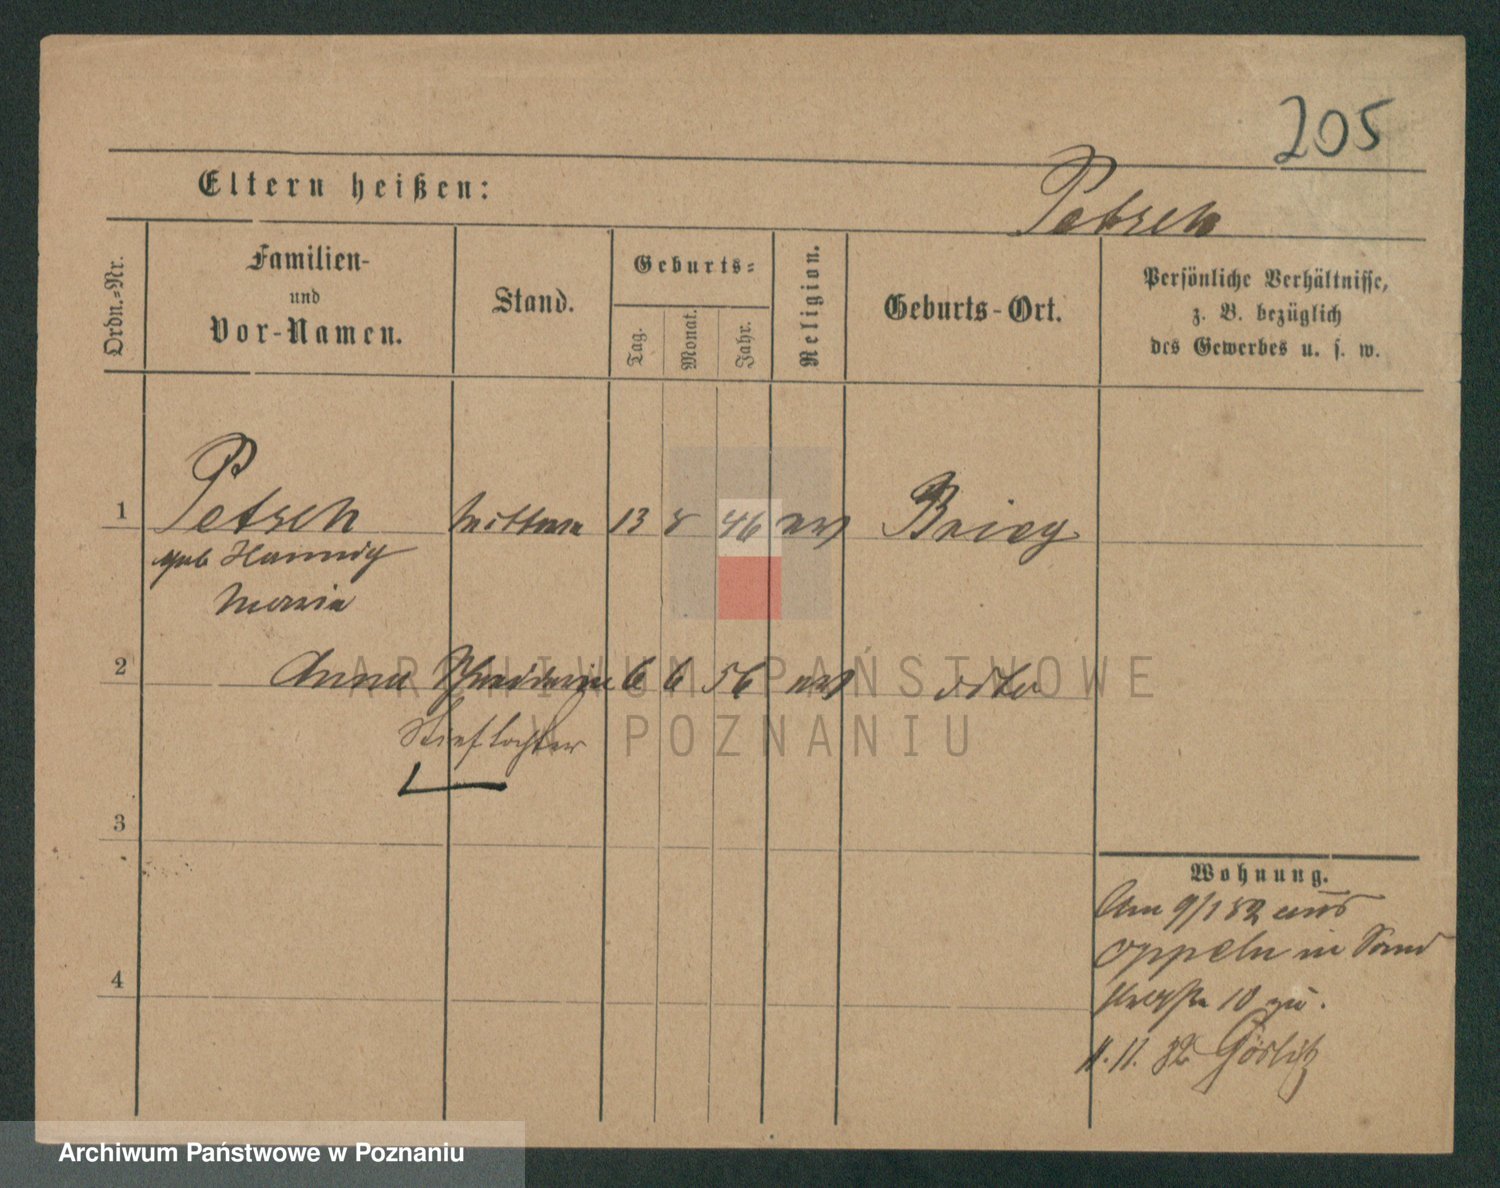 205
Eltern heißen:
Petsch
Ordn.-Nr.
Familien-
und
Vor-Namen.
Stand.
Geburts-
Tag.
Monat.
Jahr.
Religion.
Geburts-Ort.
Persönliche Verhältnisse,
z. B. bezüglich
des Gewerbes u. s. w.
1 Petsch Wittwe 13 8 46 ev Brieg
geb Hannig
Maria
2 Anna 6 6 56 ev dito
Stieftochter
3
4
Wohnung.
Am 9/1 82 aus
Oppeln in Sand
straße 10 zu.
11. 11. 82 Görlitz
ARCHIWUM PAŃSTWOWE
W POZNANIU
Archiwum Państwowe w Poznaniu